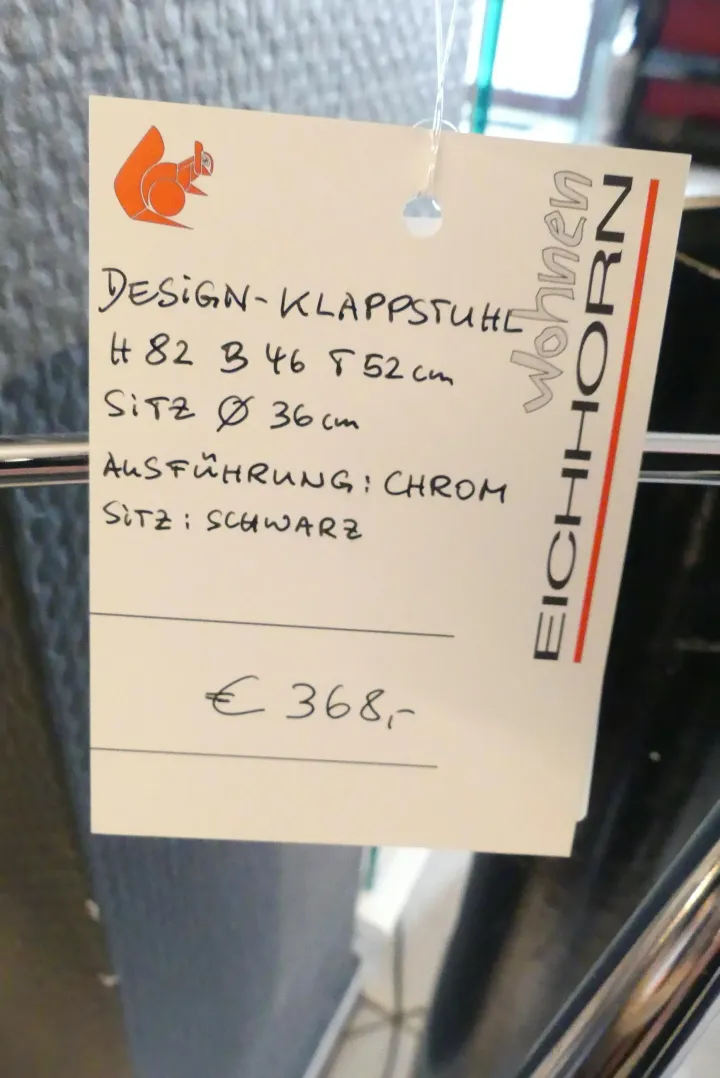 DESIGN-KLAPPSTUHL
H 82 B 46 T 52 cm
SITZ Ø 36 cm
AUSFÜHRUNG: CHROM
SITZ: SCHWARZ
€ 368,-
Wohnen
EICHHORN